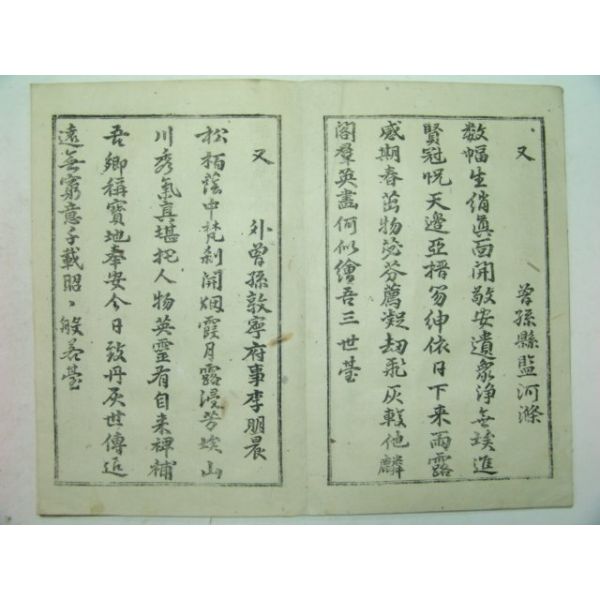 又
曾孫縣監河滌
数幅生綃眞面開敬安遺衆淨無埃進
賢冠怳天邊亞搢笏紳依日下來雨露
感期春茁物苾芬薦凝劫飛灰輗他麟
閣羣英畵何似繪吾三世䑓
又
外曾孫敦寧府事李明晨
松栢蔭中梵刹開烟霞月露浸芳埃山
川秀氣真堪托人物英靈有自来裨補
吾鄕稱寶地奉安今日致丹灰世傳近
遠無窮意千載昭〻般若䑓